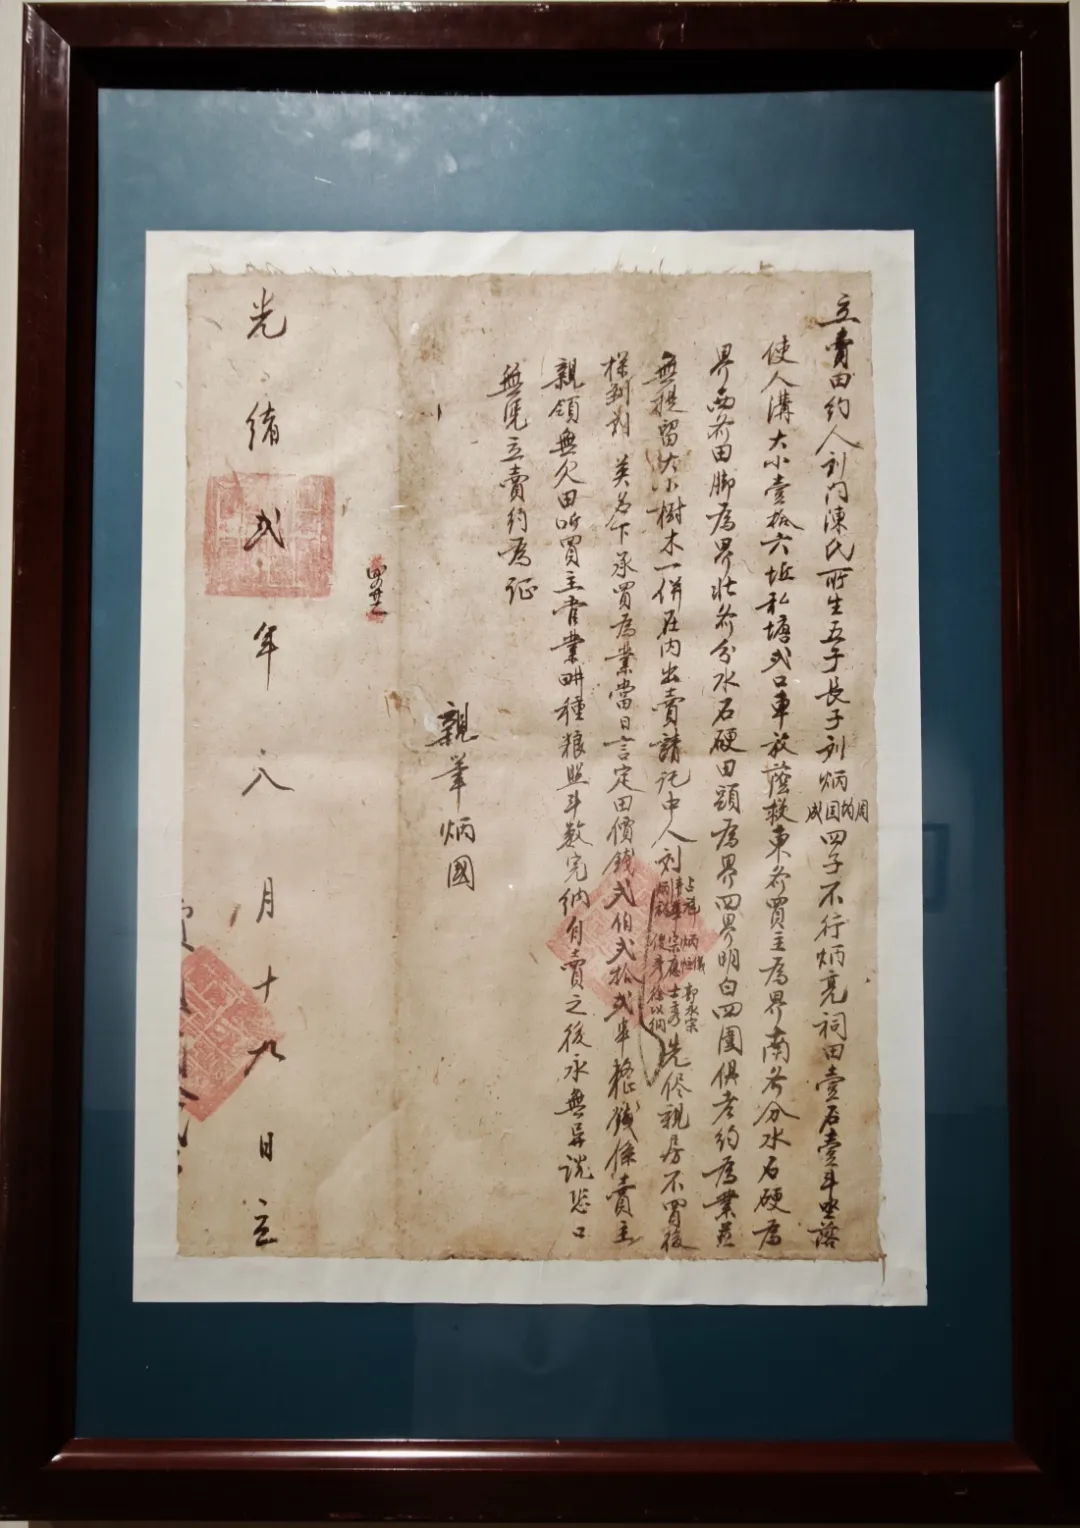 立賣田約人刘门陳氏所生五子長子刘炳周均国成四子不行炳亮祠田壹石壹斗坐落
使人溝大小壹拾六坵私塘弍口車放蔭救東齐買主為界南齐分水石硬為
界西齐田脚為界北齐分水石硬田頭為界四界明白四圍俱老約為業並
無提留大小樹木一併在内出賣請託中人刘占祥 炳儀 炳恒 郭永宗 宗應 士秀 俊彥 徐以侗先侭親房不買後
採到刘 英名下承買為業當日言定田價錢弍伯弍拾弍串整錢係賣主
親領無欠田听買主耆業畊種粮照斗數完纳自賣之後永無异说恐口
無凭立賣約為证
親筆炳國
光緒弍年八月十九日立